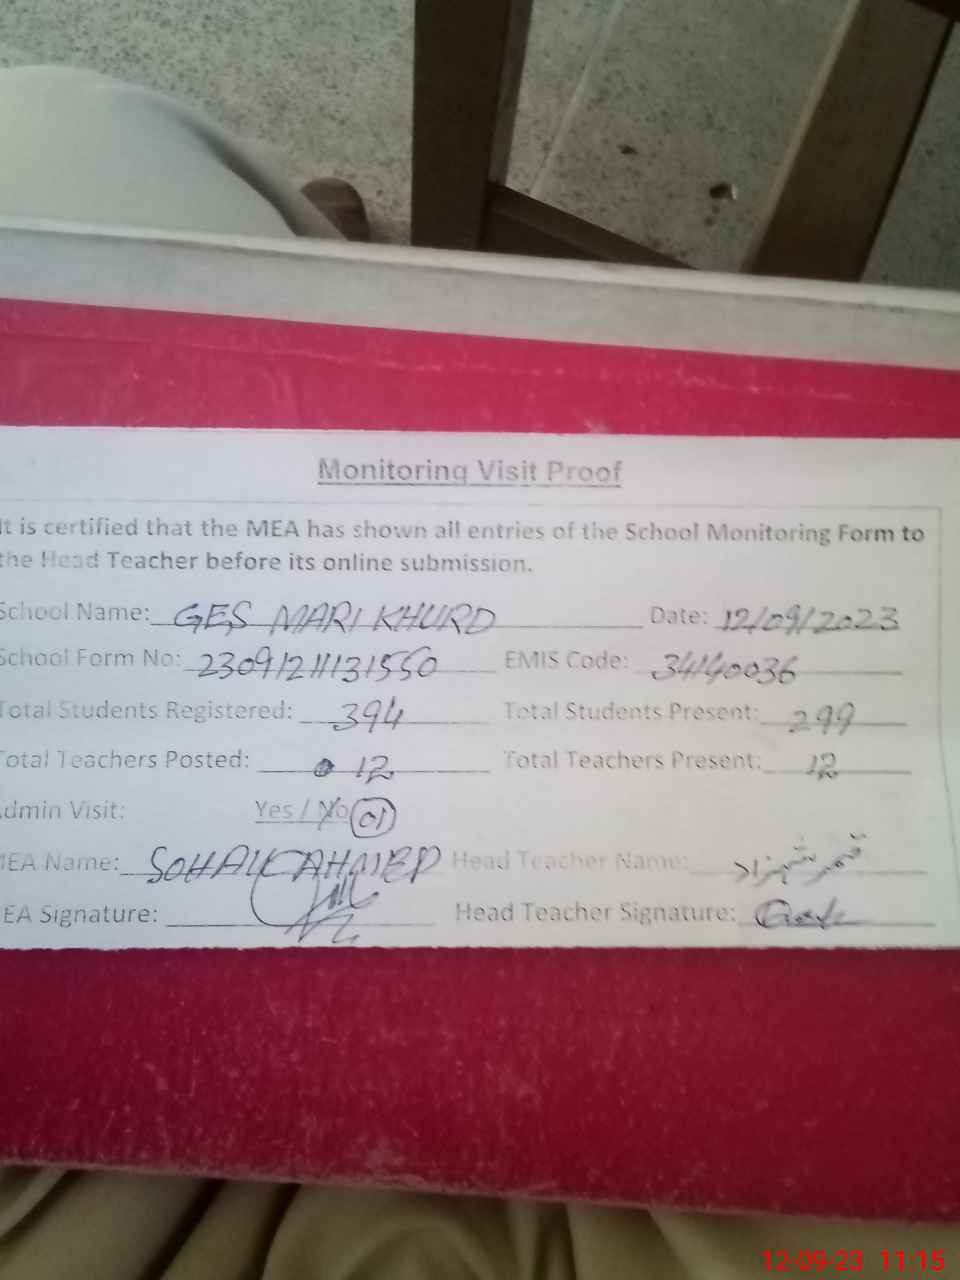 Monitoring Visit Proof
It is certified that the MEA has shown all entries of the School Monitoring Form to
the Head Teacher before its online submission.
School Name: GES MARI KHURD Date: 12/09/2023
School Form No: 23091211131550 EMIS Code: 34140036
Total Students Registered: 394 Total Students Present: 299
Total Teachers Posted: 12 Total Teachers Present: 12
dmin Visit: Yes / No 01
MEA Name: SOHAIL AHMED Head Teacher Name: قمر شہزاد
EA Signature: Head Teacher Signature:
12-09-23 11:15